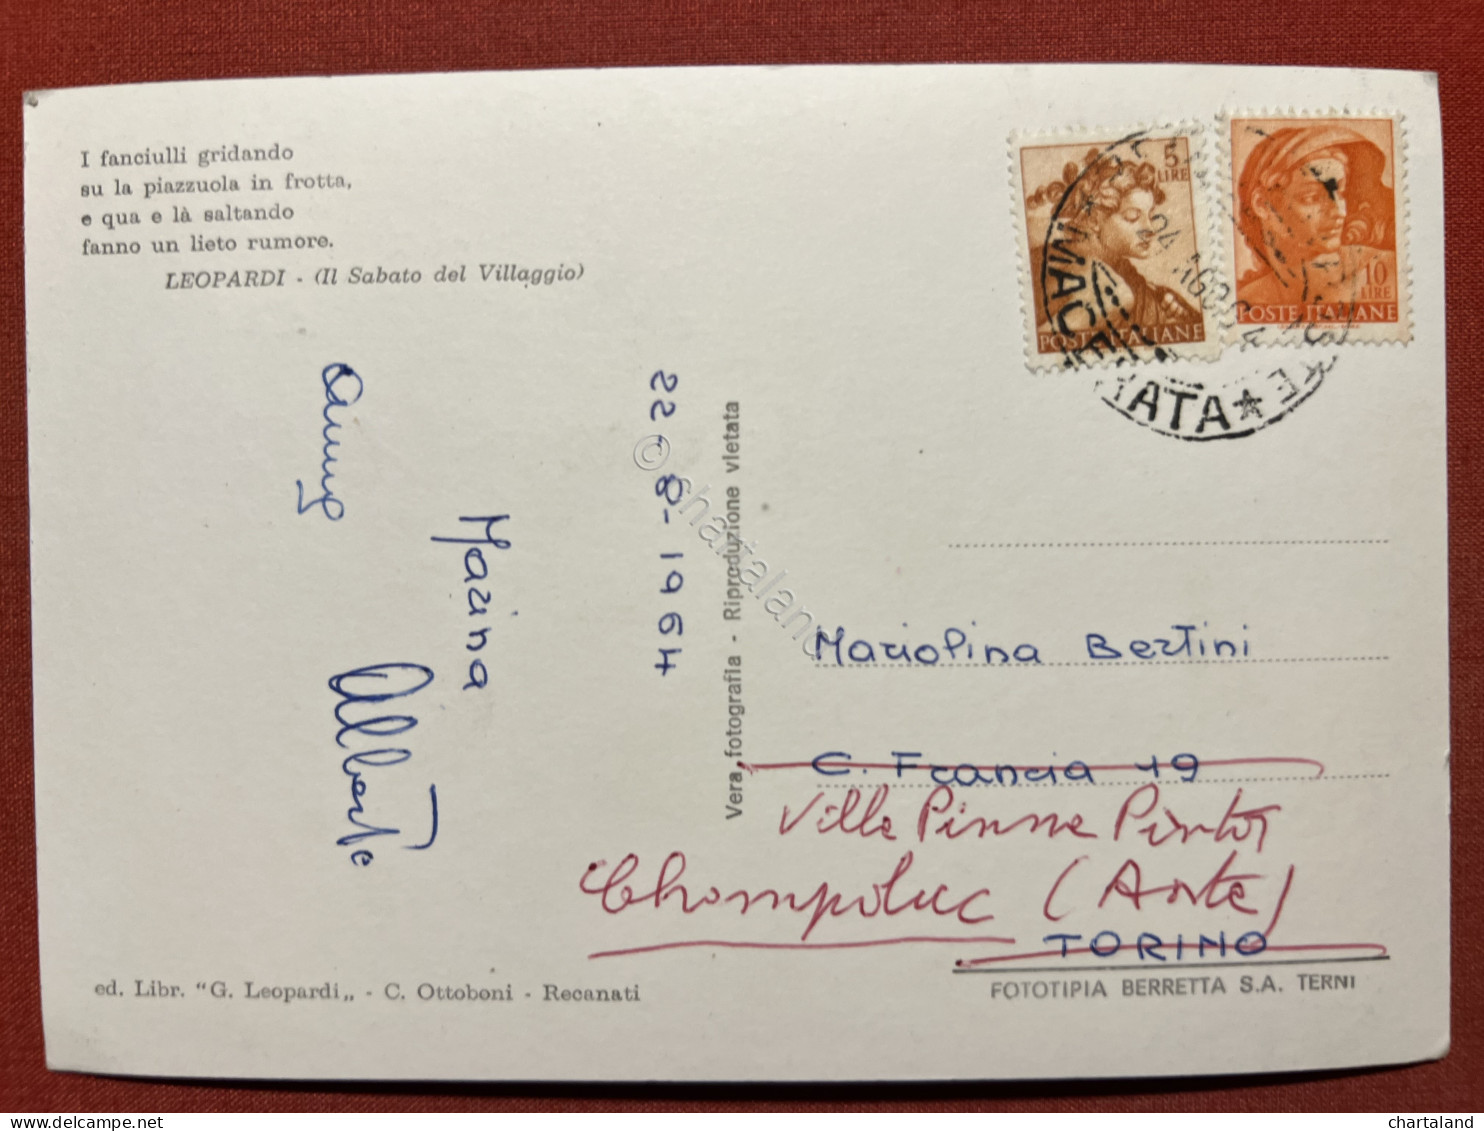 I fanciulli gridando
su la piazzuola in frotta,
e qua e là saltando
fanno un lieto rumore.
LEOPARDI - (Il Sabato del Villaggio)
22-8-1964
Marina
Alberto
ed. Libr. "G. Leopardi„ - C. Ottoboni - Recanati
Vera fotografia - Riproduzione vietata
5
LIRE
POSTE ITALIANE
10
LIRE
POSTE ITALIANE
MACERATA
Mariolina Bertini
C. Francia 19
Champoluc (Aosta)
TORINO
FOTOTIPIA BERRETTA S.A. TERNI
© chartaland
chartaland